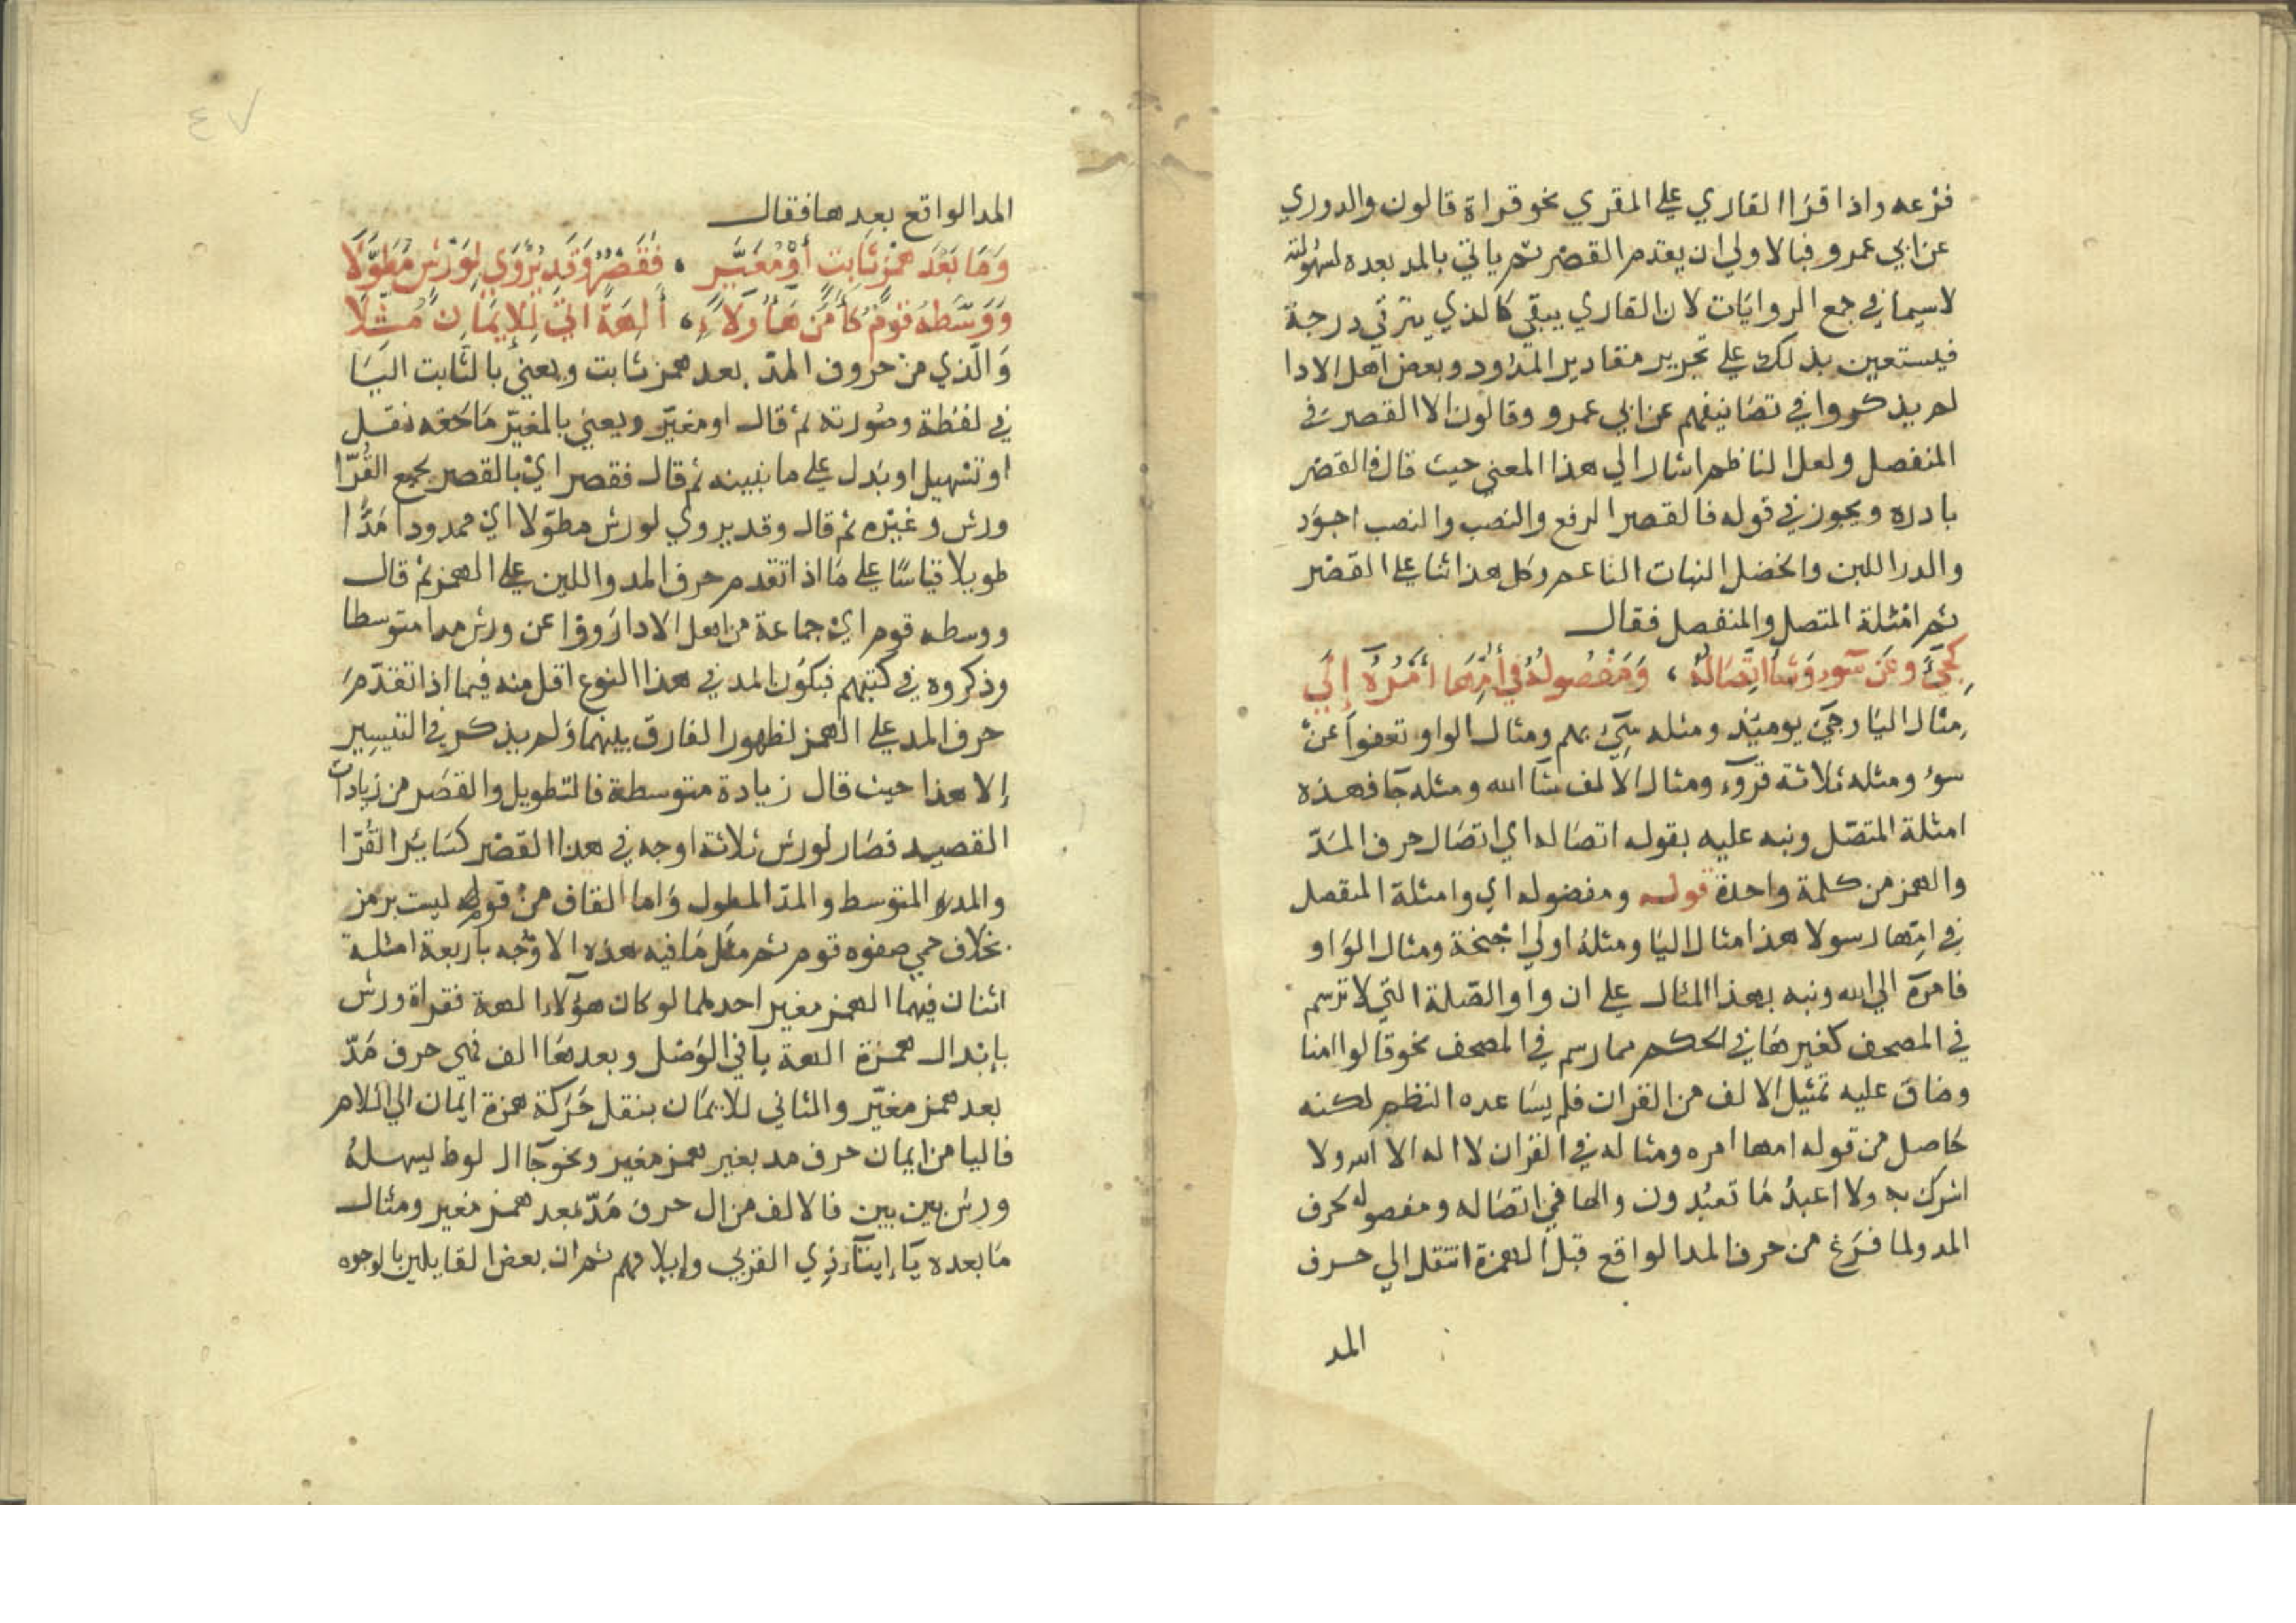 فرعه واذا قرا القاري علي المقري نحو قراة قالون والدوري
عن ابي عمرو فبالاولي ان يقدم القصر ثم ياتي بالمد بعده لسهولته
لاسيما في جمع الروايات لان القاري يبقي كالذي يترقي درجة
فيستعين بذلك علي تحرير مقادير المدود وبعض اهل الادا
لم يذكروا في تصانيفهم عن ابي عمرو وقالون الا القصر في
المنفصل ولعل الناظم اشار الي هذا المعني حيث قال فالقصر
بادره ويجوز في قوله فالقصر الرفع والنصب والنصب اجود
والدر اللبن والخضل النبات الناعم وكل هذا ثنا علي القصر
ثم امثلة المتصل والمنفصل فقال
كَجِيءَ وعَن سوءٍ وَشَاءَ اتِّصَالُهُ ، وَمَفْصُولُهُ في أُمِّهَا أَمْرُهُ إِلَي
مثال اليا وجيَ يوميَذ ومثله سِيَ بهم ومثال الواو تعفوا عن
سوُ ومثله ثلاثة قروَء ومثال الالف شآ الله ومثله جآ فهذه
امثلة المتصّل ونبه عليه بقوله اتصاله اي اتصال حرف المَدّ
والهمز من كلمة واحدة قوله ومفصوله اي وامثلة المنفصل
في امِّها رسولا هذا مثال اليا ومثله اولي اجنحة ومثال الواو
فامرهَ الي الله ونبه بهذا المثال علي ان واو الصّلة التي لا ترسم
في المصحف كغيرها في الحكم مما رسم في المصحف نحو قالوا امنا
وضاق عليه تمثيل الالف من القران فلم يسَاعده النظم لكنه
حَاصل من قوله امها امره ومثاله في القران لا اله الا الله ولا
اشرك به ولا اعبدُ مَا تعبُدون والها في اتصَاله ومفصوله لحرف
المد ولما فرغ من حرف المد الواقع قبل الهمزة انتقل الي حرف
المد
٤٧
المد الواقع بعدها فقال
وَمَا بَعْدَ همْزٍ ثَابِتٍ أَوْ مُغَيَّرٍ ، فَقَصْرٌ وَقَد يُرْوَي لِوَرْشٍ مُطَوَّلَا
وَوَسَّطَهُ قومٌ كآمَنَ هَاؤُلَاءِ ، أَالِهَةً اتَي لِلإِيمَانِ مُثِّلَا
وَالّذي من حروف المدّ بعد همز ثابت ويعني بالثابت البَا
في لفظة وصُورته ثم قال او مغيّر ويعني بالمغيّر مَا لحقه نقل
او تسْهيل او بَدل علي ما نبينه ثم قال فقصر ايْ بالقصر لجمع القُرّا
ورش وغيره ثم قال وقد يروي لورش مطوّلا ايْ ممدودا مَدًّا
طويلا قياسًا علي مَا اذا تقدم حرف المد واللين علي الهمز ثم قال
ووسطه قوم ايْ جماعة من اهل الادا رَووْا عن ورش مدا متوسطا
وذكروه في كتبهم فيكون المد في هذا النوع اقل منه فيما اذا تقدّمَ
حرف المد علي الهمز لظهور الفارق بينهما ولم يذكر في التيسير
إلا هذا حيث قال زيادة متوسطة فالتطويل والقصر من زيادات
القصيد فصَار لورش ثلاثة اوجه في هذا القصر كسَاير القُرّا
والمد المتوسط والمدّ المطول وَاما القاف من قوله ليست برمز
بخلاف حمي صفوه قوم ثم مثل مَا فيه هذه الاوجه بأربعة امثلة
اثنان فيهما الهمز مغير احدهما لو كان هؤلاء الهة فقراة ورش
بإبْدال همزة الهة يا في الوَصْل وبعدهَا الف فهي حرف مَدّ
بعد همز مغيّر والثاني للايمَان بنقل حَرَكة همزة ايمان الي اللام
فاليا من ايمان حرف مد بغير همز مغير ونحو جَا ال لوط يسهلهُ
ورش بين بين فالالف من ال حرف مَدّ بعد همز مغير ومثال
مَا بعده يَا إيتآء ذي القربي وإيلافهم ثم ان بعض القايلين بالوجوه